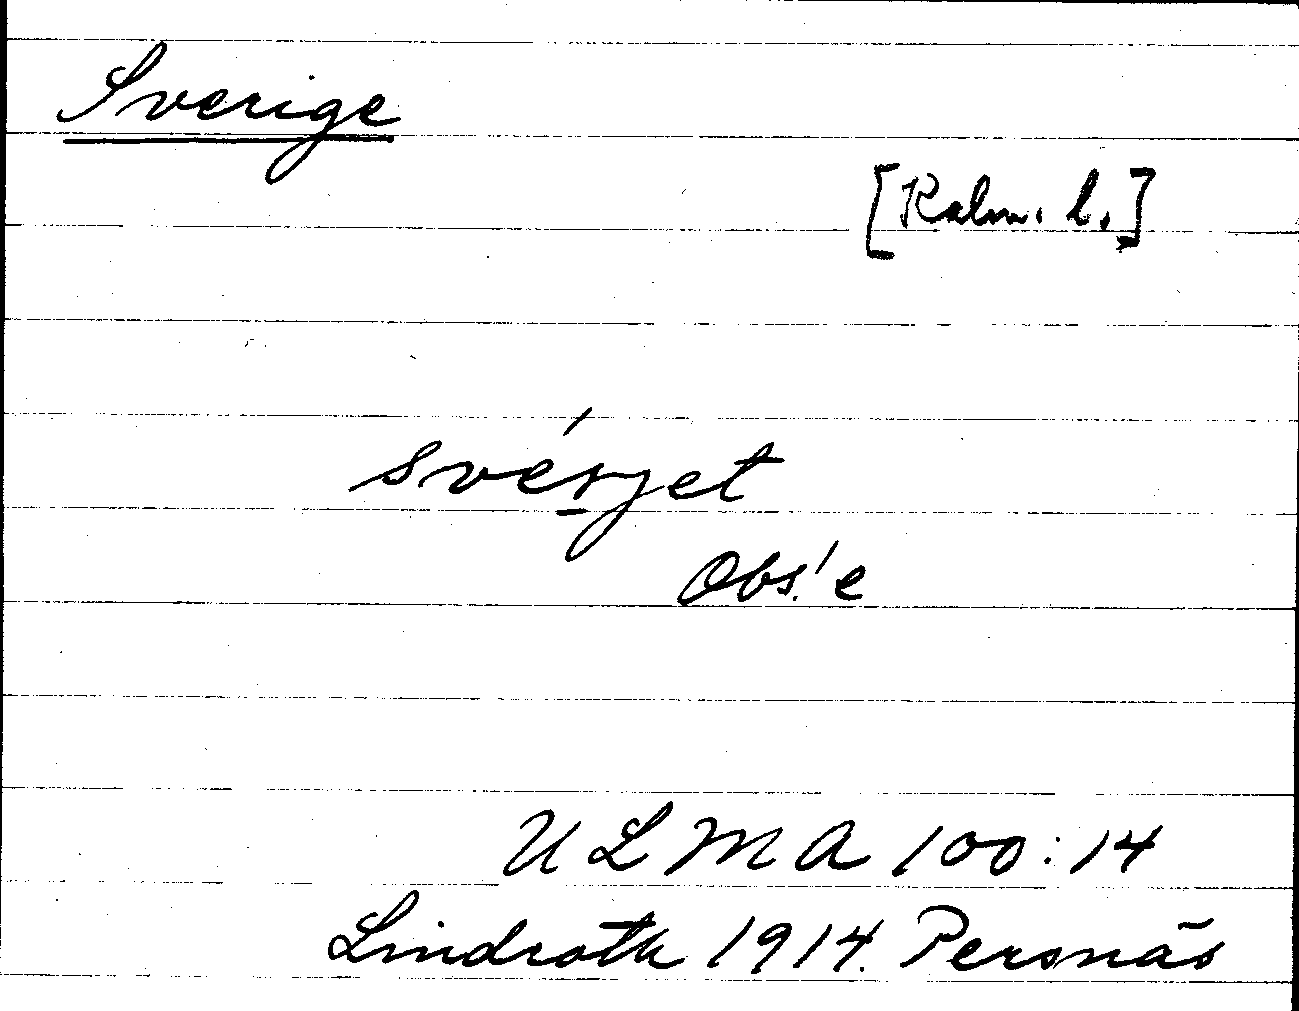 Sverige
[Kalm. l.]
svérjet
Obs! e
ULMA 100:14
Lindroth 1914. Persnäs